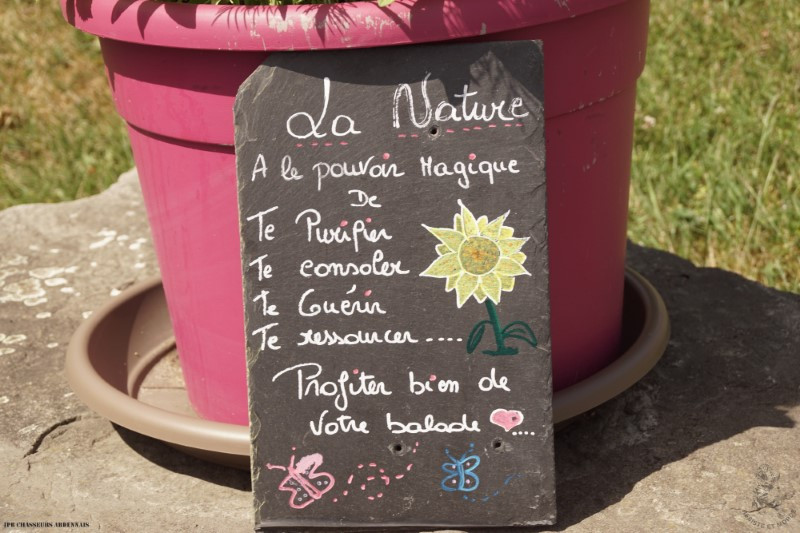 La Nature
A le pouvoir Magique
De
Te Purifier
Te consoler
Te Guérir
Te ressourcer ....
Profiter bien de
Votre balade ....